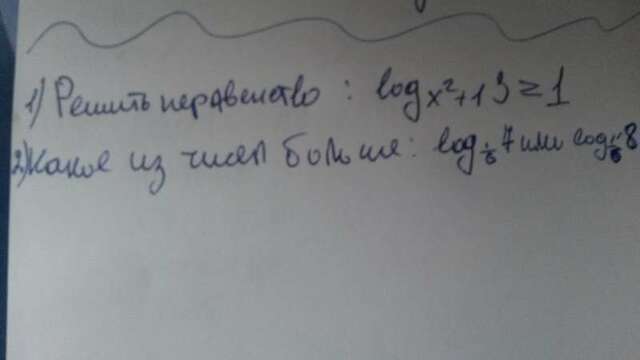 1) Решить неравенство: log x²+1 3 ≥ 1
2) Какое из чисел больше: log 1/6 7 или log 1/6 8